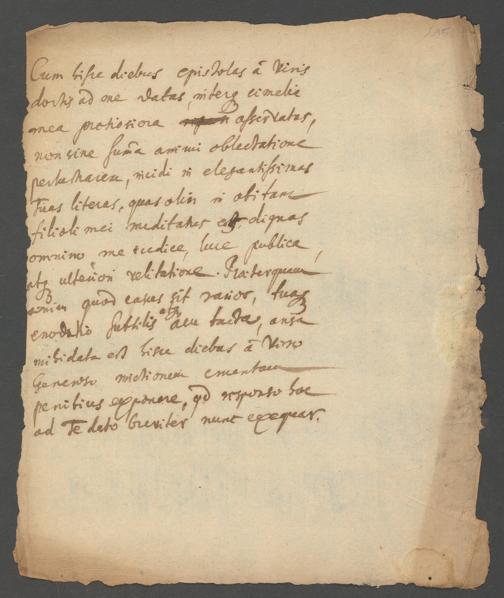 Cum hisce diebus epistolas à Viris
doctis ad me datas, interq cimelia
mea pretiosiora asservatas,
non sine sum̃a animi oblectatione
perlustrarem, incidi in elegantissimas
Tuas literas, quas olim in obitum
filioli mei meditatus es, dignas
omnino me iudice, luce publica,
atq ulteriori
enim quod casus sit rarior, tuaq
enodatio subtilis atq acu tacta, ansa
mihi data est hisce diebus à Viro
Generoso mictionem cruentam
penitius exponere, qd responso hoc
ad Te dato breviter nunc exequar.